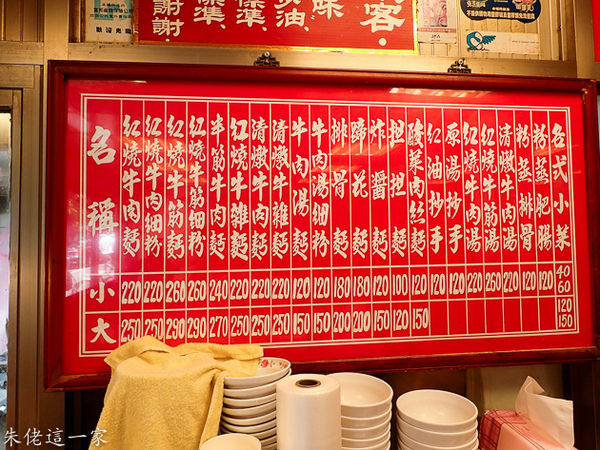 客.
味
油,
標準.
標準
謝謝.
名稱 小 大
紅燒牛肉麵 220 250
紅燒牛肉細粉 220 250
紅燒牛筋麵 260 290
紅燒牛筋細粉 260 290
半筋牛肉麵 240 270
紅燒牛雜麵 220 250
清燉牛肉麵 220 250
清燉牛雜麵 220 250
牛肉湯麵 120 150
牛肉湯細粉 120 150
排骨麵 180 200
蹄花麵 180 200
炸醬麵 120 150
担担麵 100 120
酸菜肉絲麵 120 150
紅油抄手 120
原湯抄手 120
紅燒牛肉湯 220
紅燒牛筋湯 260
清燉牛肉湯 220
粉蒸排骨 120
粉蒸肥腸 120
各式小菜 40 60 120 150
朱佬這一家